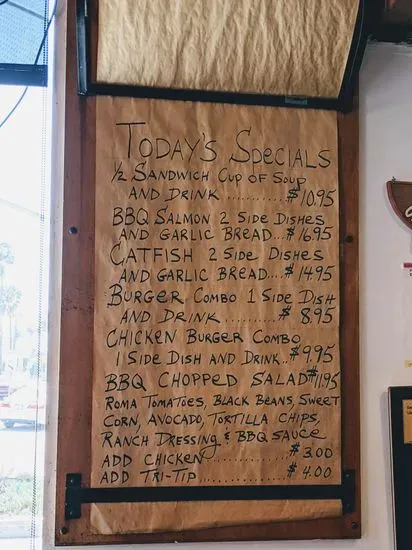 TODAY'S SPECIALS
½ SANDWICH CUP OF SOUP
AND DRINK ........... $10.95
BBQ SALMON 2 SIDE DISHES
AND GARLIC BREAD...$16.95
CATFISH 2 SIDE DISHES
AND GARLIC BREAD....$14.95
BURGER COMBO 1 SIDE DISH
AND DRINK ........... $8.95
CHICKEN BURGER COMBO
1 SIDE DISH AND DRINK..$9.95
BBQ CHOPPED SALAD $11.95
ROMA TOMATOES, BLACK BEANS, SWEET
CORN, AVOCADO, TORTILLA CHIPS,
RANCH DRESSING & BBQ SAUCE
ADD CHICKEN ............ $3.00
ADD TRI-TIP ............ $4.00